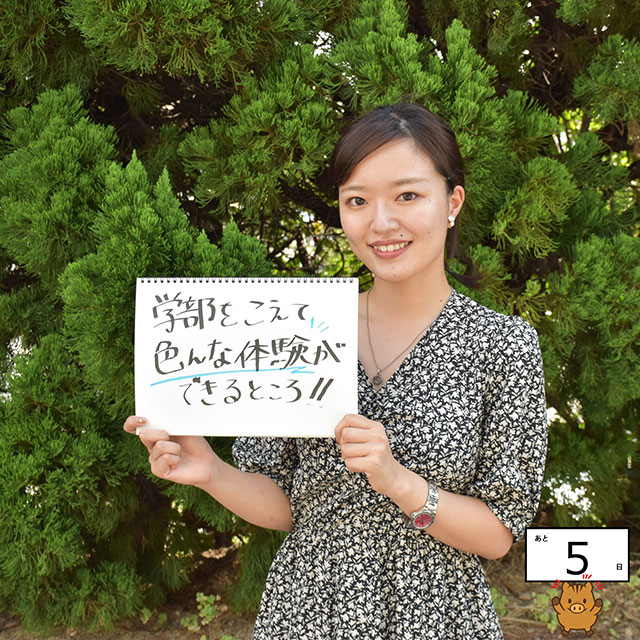 学部をこえて
色んな体験が
できるところ!!
あと
5
日